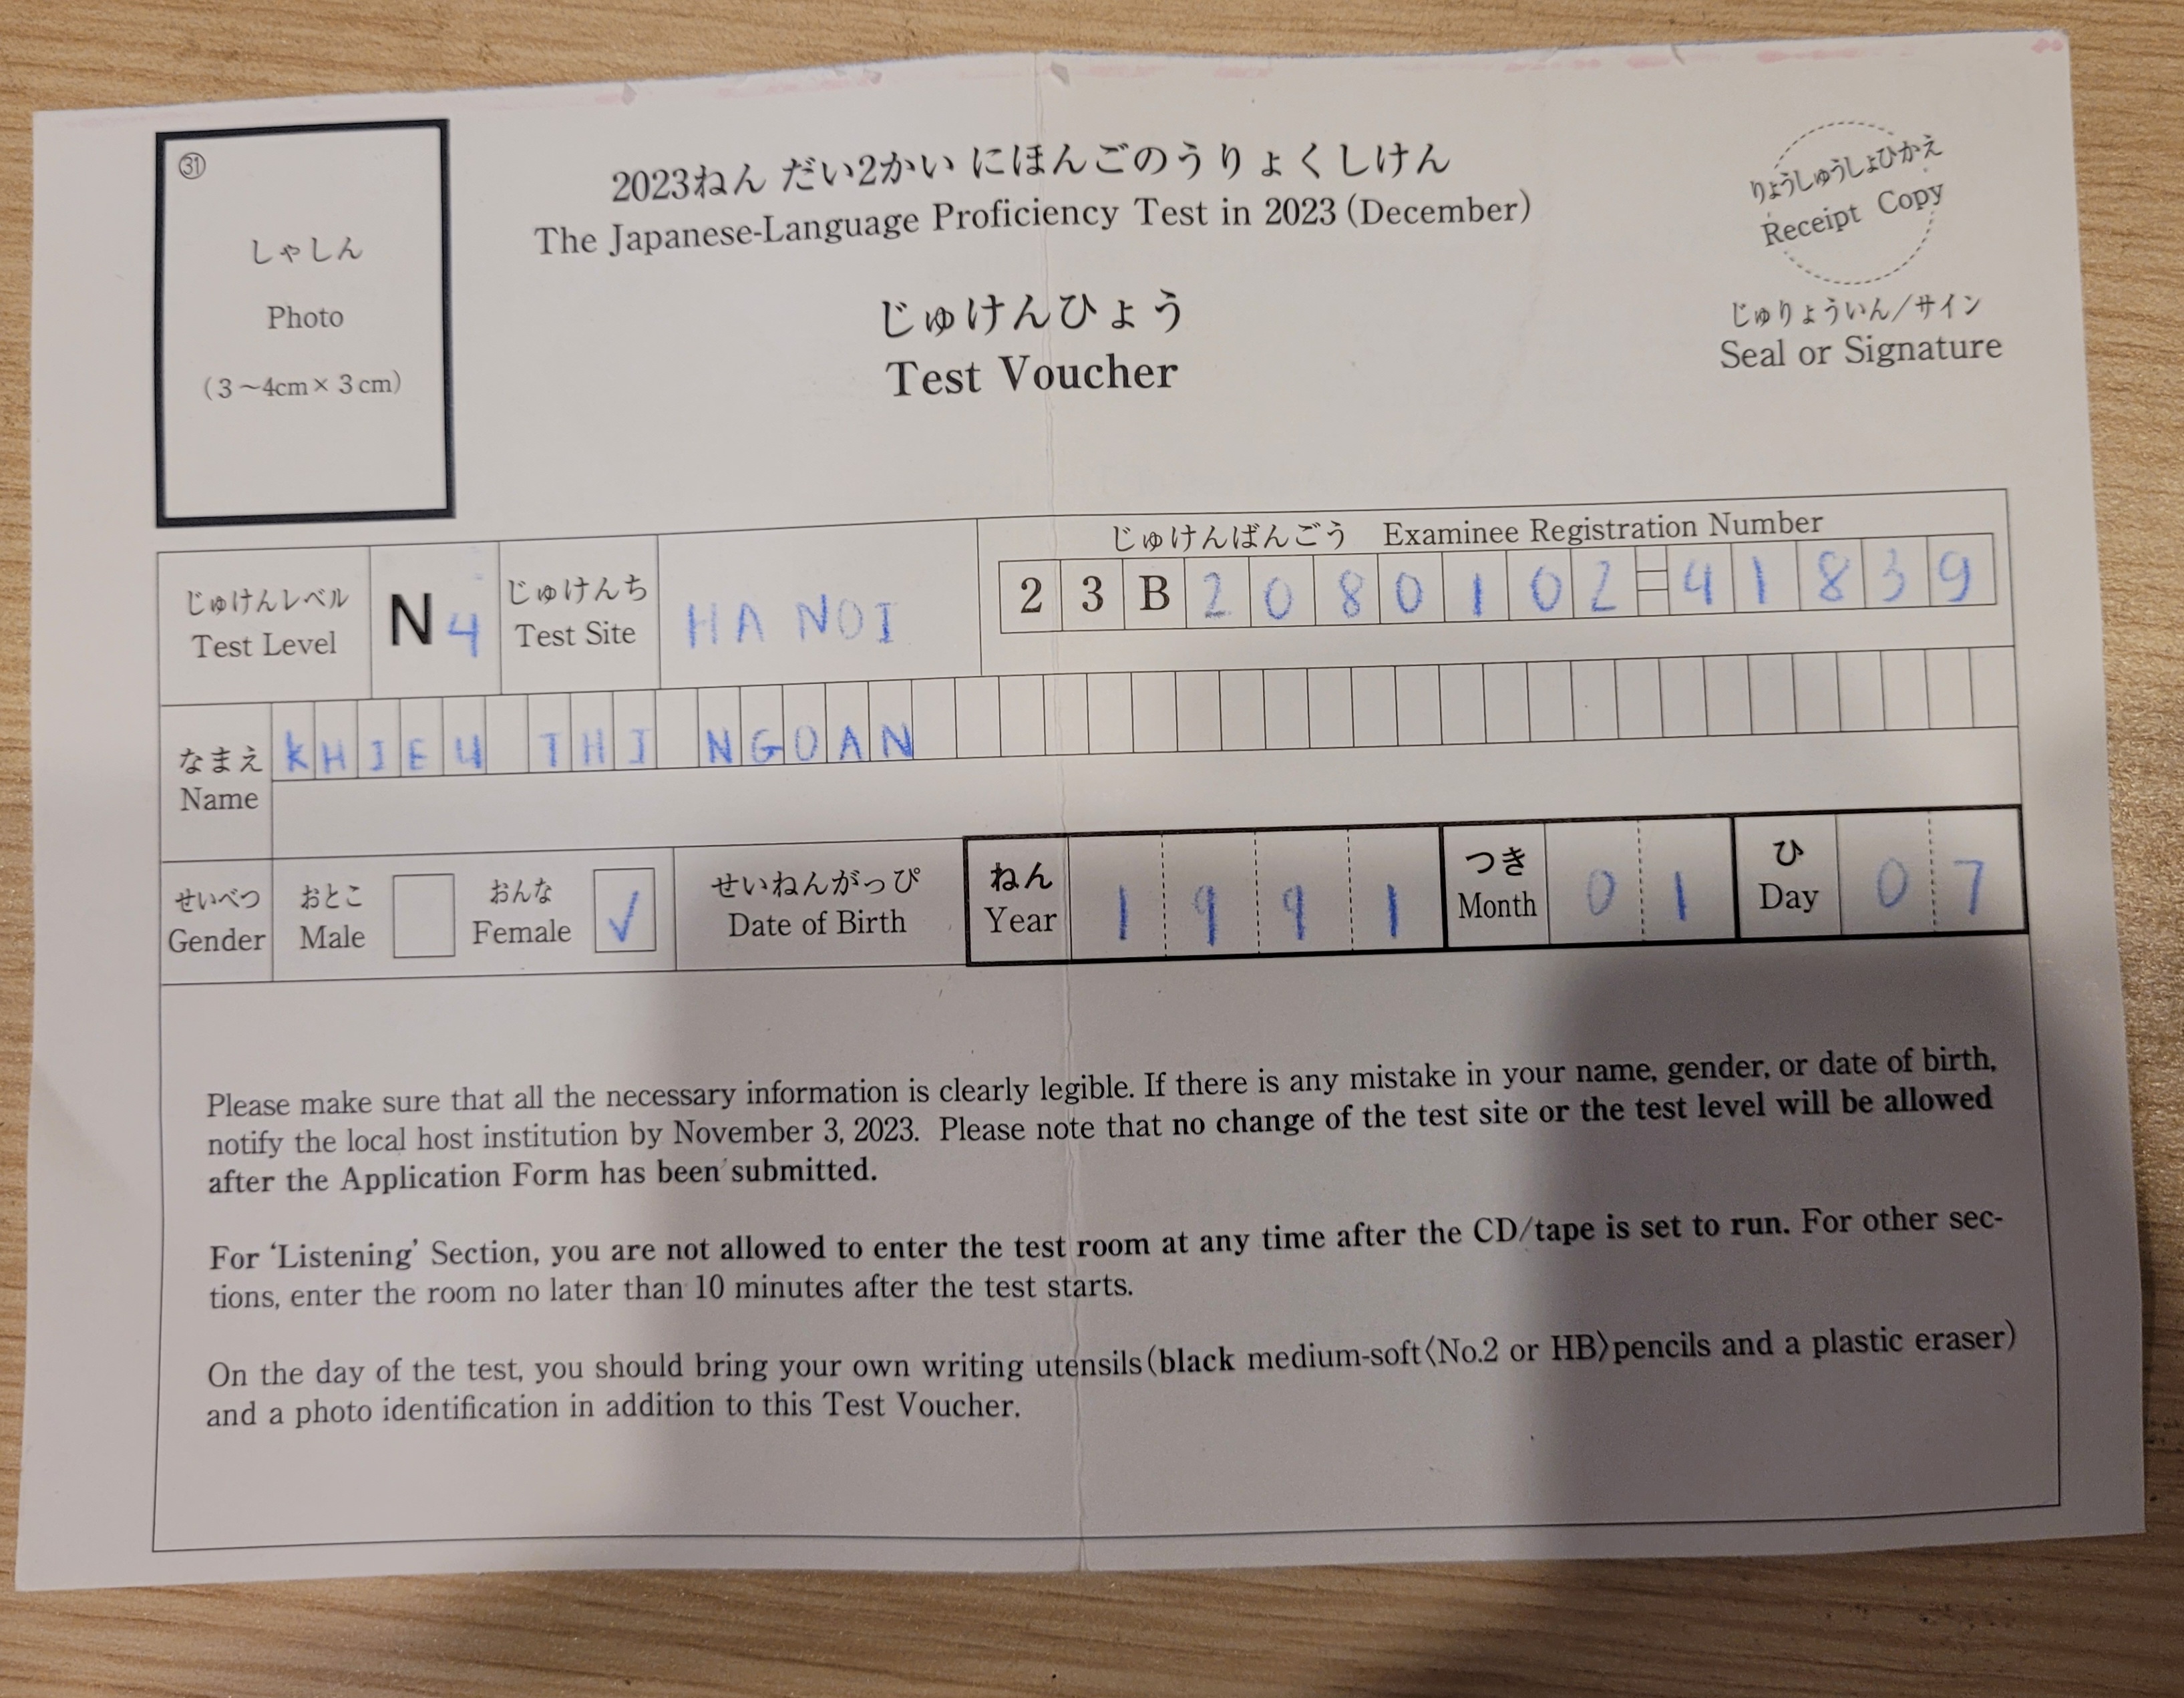 ㉛
しゃしん
Photo
(3～4cm×3cm)
2023ねん だい2かい にほんごのうりょくしけん
The Japanese-Language Proficiency Test in 2023 (December)
じゅけんひょう
Test Voucher
りょうしゅうしょひかえ
Receipt Copy
じゅりょういん/サイン
Seal or Signature
じゅけんレベル
Test Level
N4
じゅけんち
Test Site
HA NOI
じゅけんばんごう Examinee Registration Number
23B2080102-41839
なまえ
Name
KHIEU THI NGOAN
せいべつ
Gender
おとこ
Male
おんな
Female
✓
せいねんがっぴ
Date of Birth
ねん
Year
1991
つき
Month
01
ひ
Day
07
Please make sure that all the necessary information is clearly legible. If there is any mistake in your name, gender, or date of birth,
notify the local host institution by November 3, 2023. Please note that no change of the test site or the test level will be allowed
after the Application Form has been submitted.
For ‘Listening’ Section, you are not allowed to enter the test room at any time after the CD/tape is set to run. For other sec-
tions, enter the room no later than 10 minutes after the test starts.
On the day of the test, you should bring your own writing utensils(black medium-soft〈No.2 or HB〉pencils and a plastic eraser)
and a photo identification in addition to this Test Voucher.